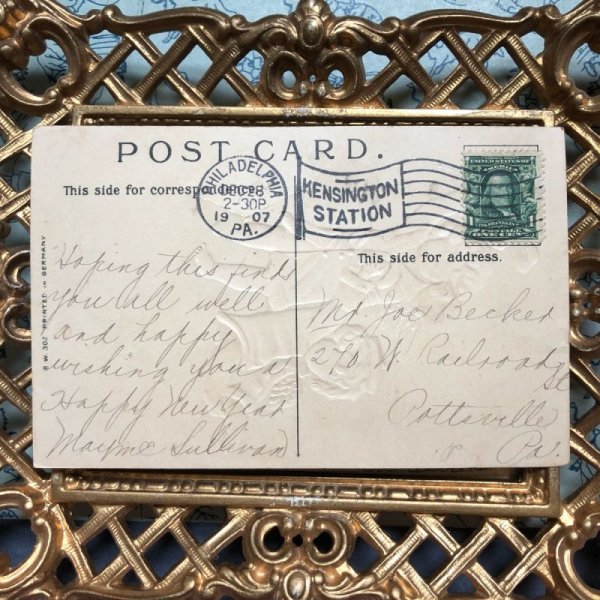 POST CARD.
This side for correspondence.
PHILADELPHIA
DEC 28
2-30P
1907
PA.
KENSINGTON
STATION
UNITED STATES OF AMERICA
POSTAGE
ONE CENT
This side for address.
B.W. 302 PRINTED IN GERMANY
Hoping this finds
you all well
and happy
wishing you a
Happy New Year
Mayme Sullivan
Mr. Joe Becker
270 W. Railroad
St
Pottsville
Pa.